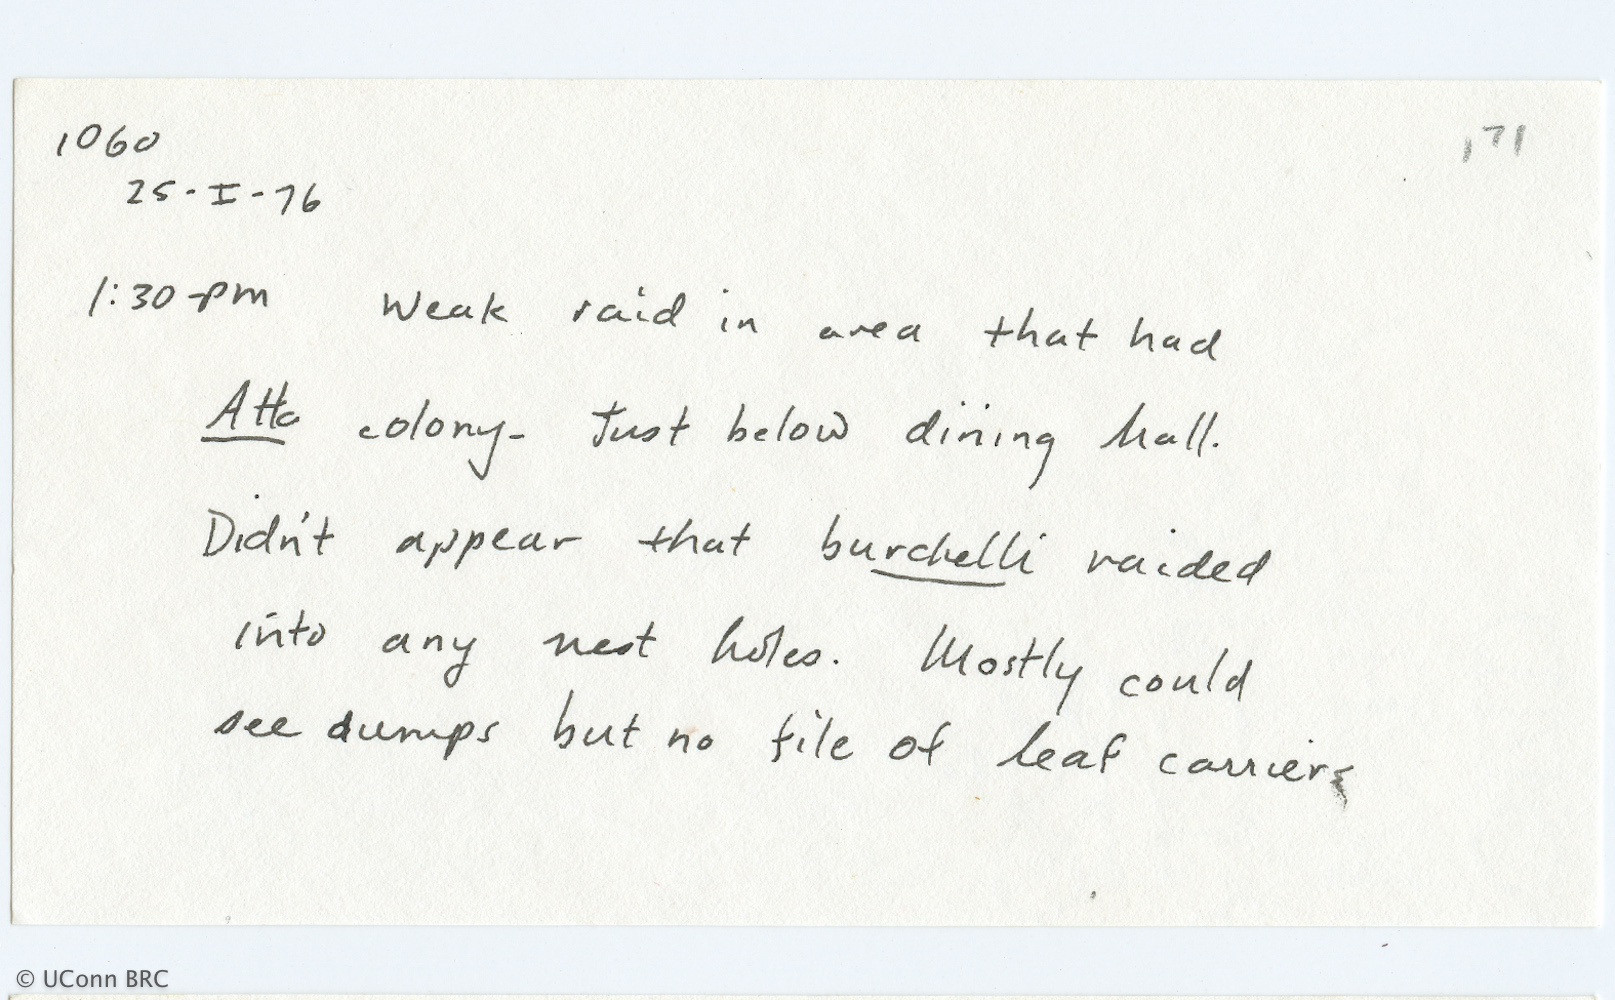 1060
171
25-I-76
1:30-pm Weak raid in area that had
Atta colony- Just below dining hall.
Didn't appear that burchelli raided
into any nest holes. Mostly could
see dumps but no file of leaf carriers
© UConn BRC